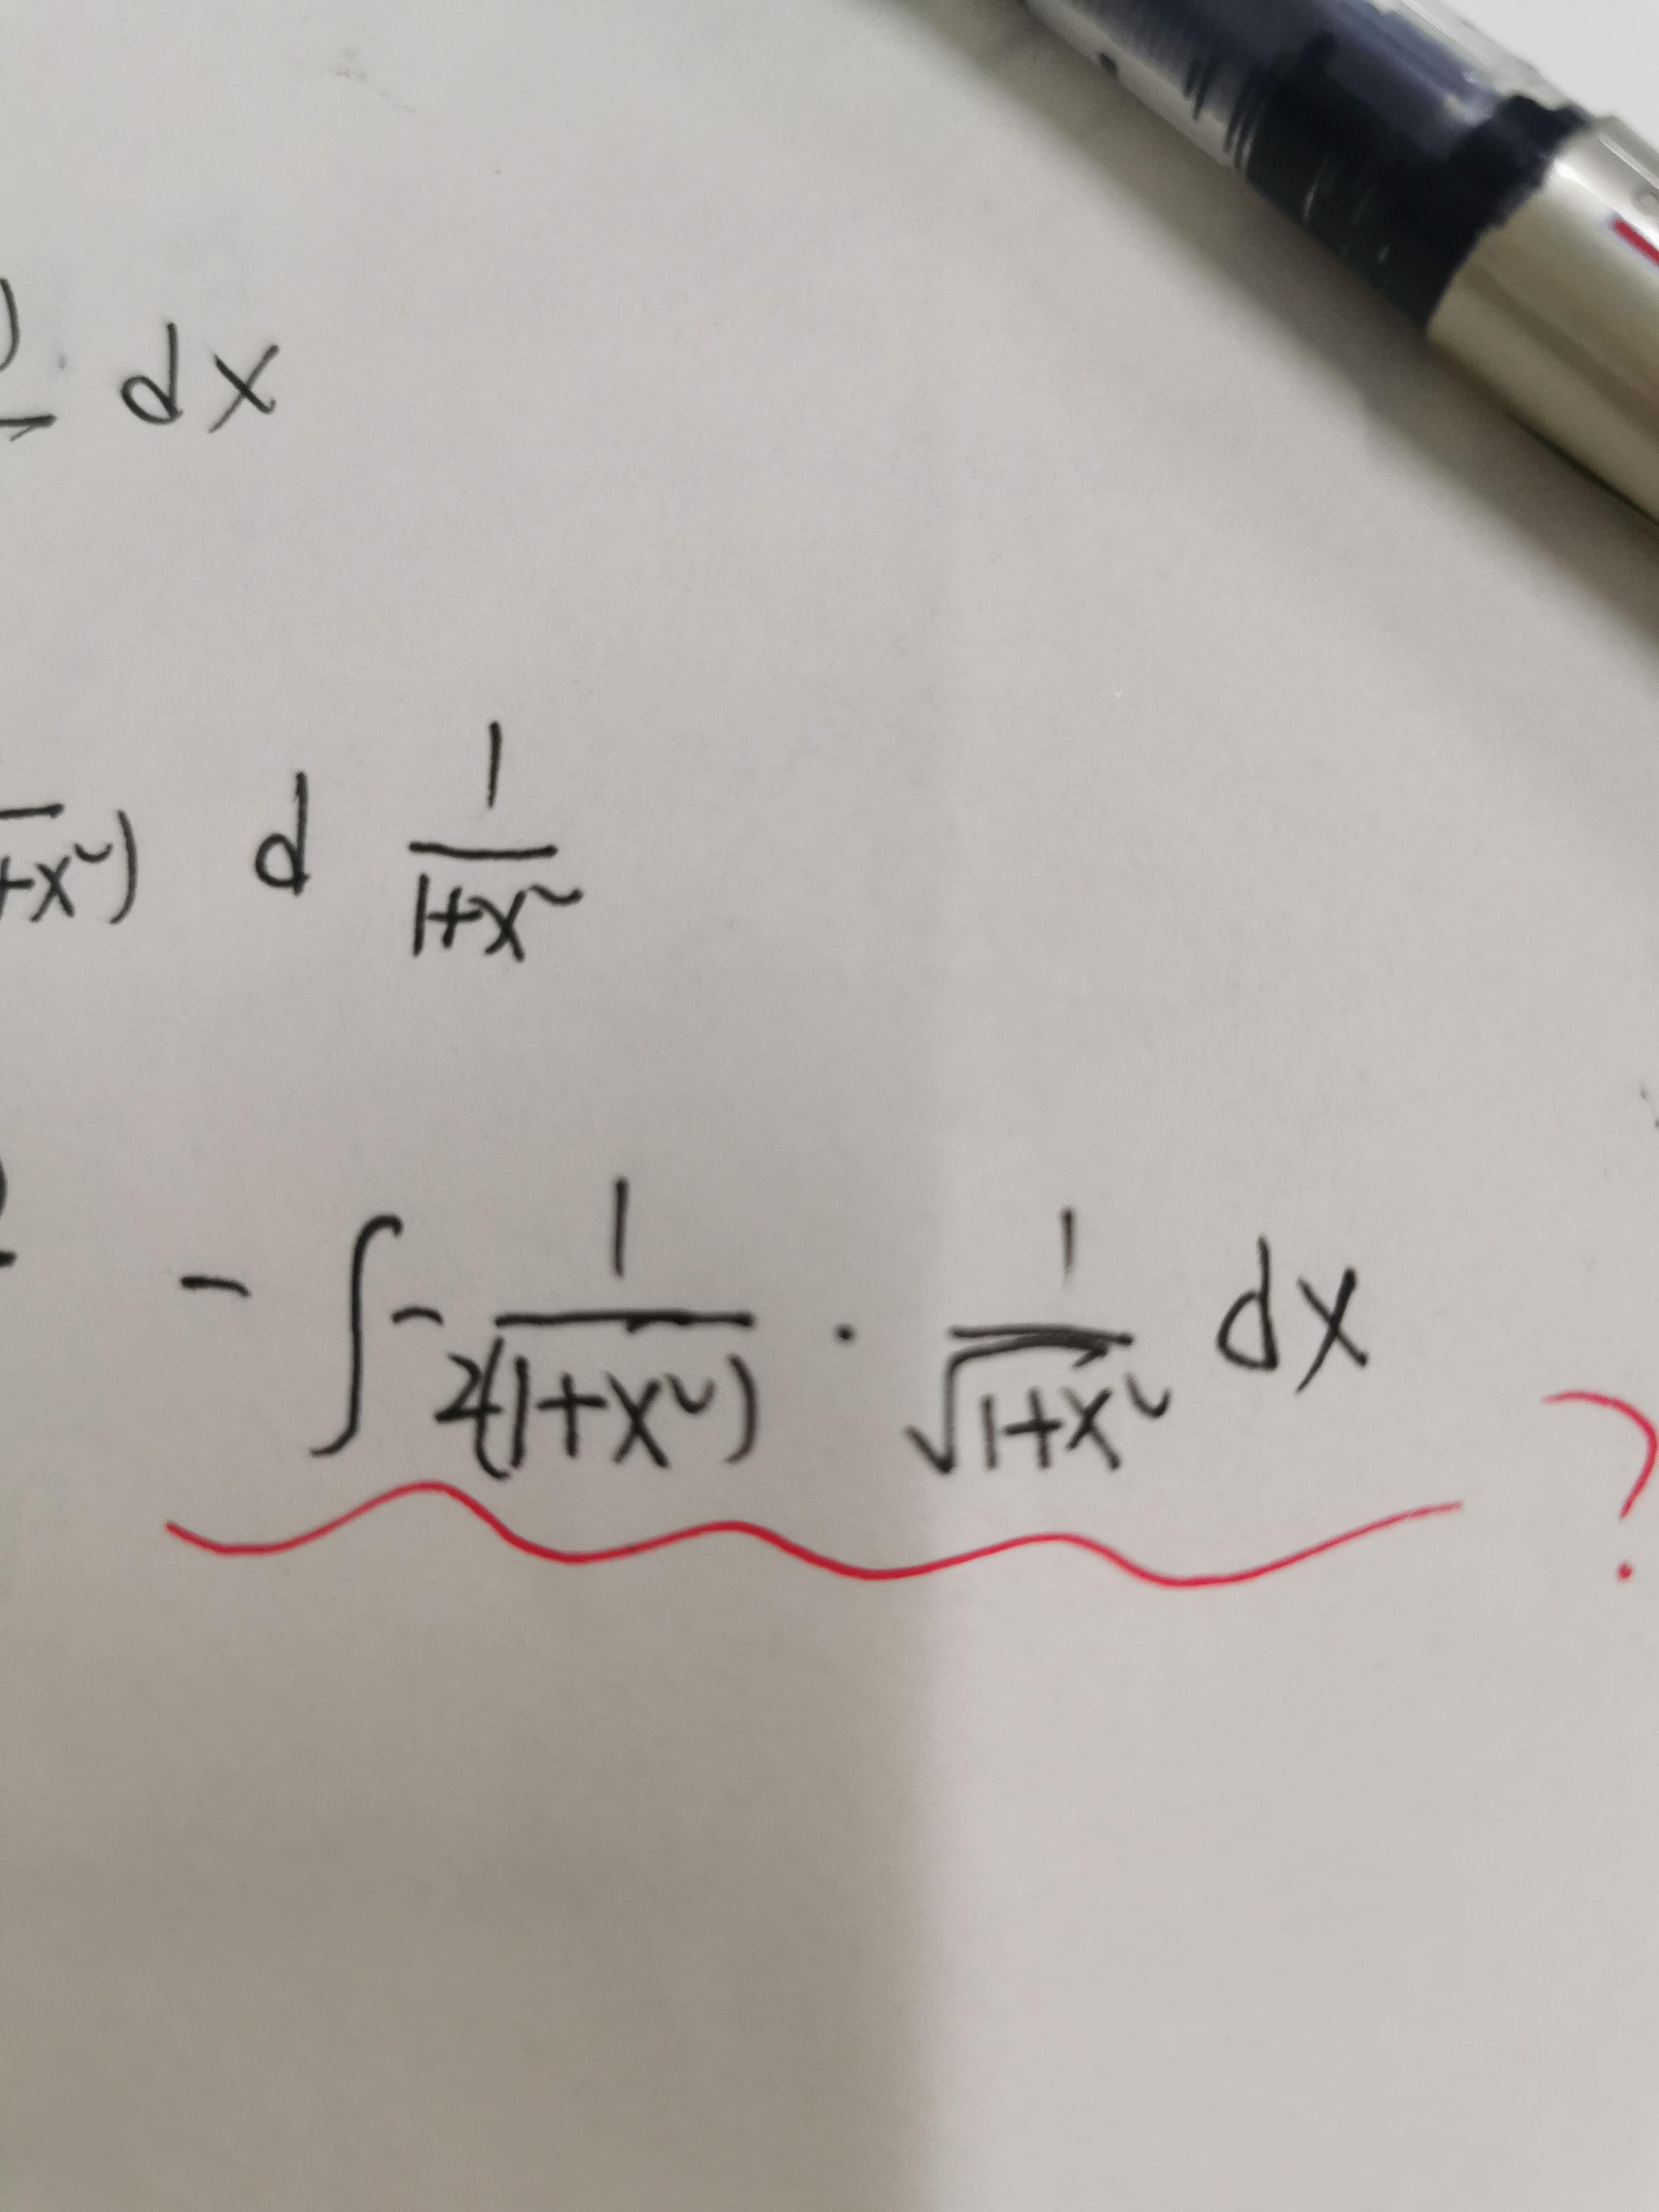 ) dx
+x²) d 1/(1+x²)
- ∫ - 1/(2(1+x²)) · 1/√(1+x²) dx ?